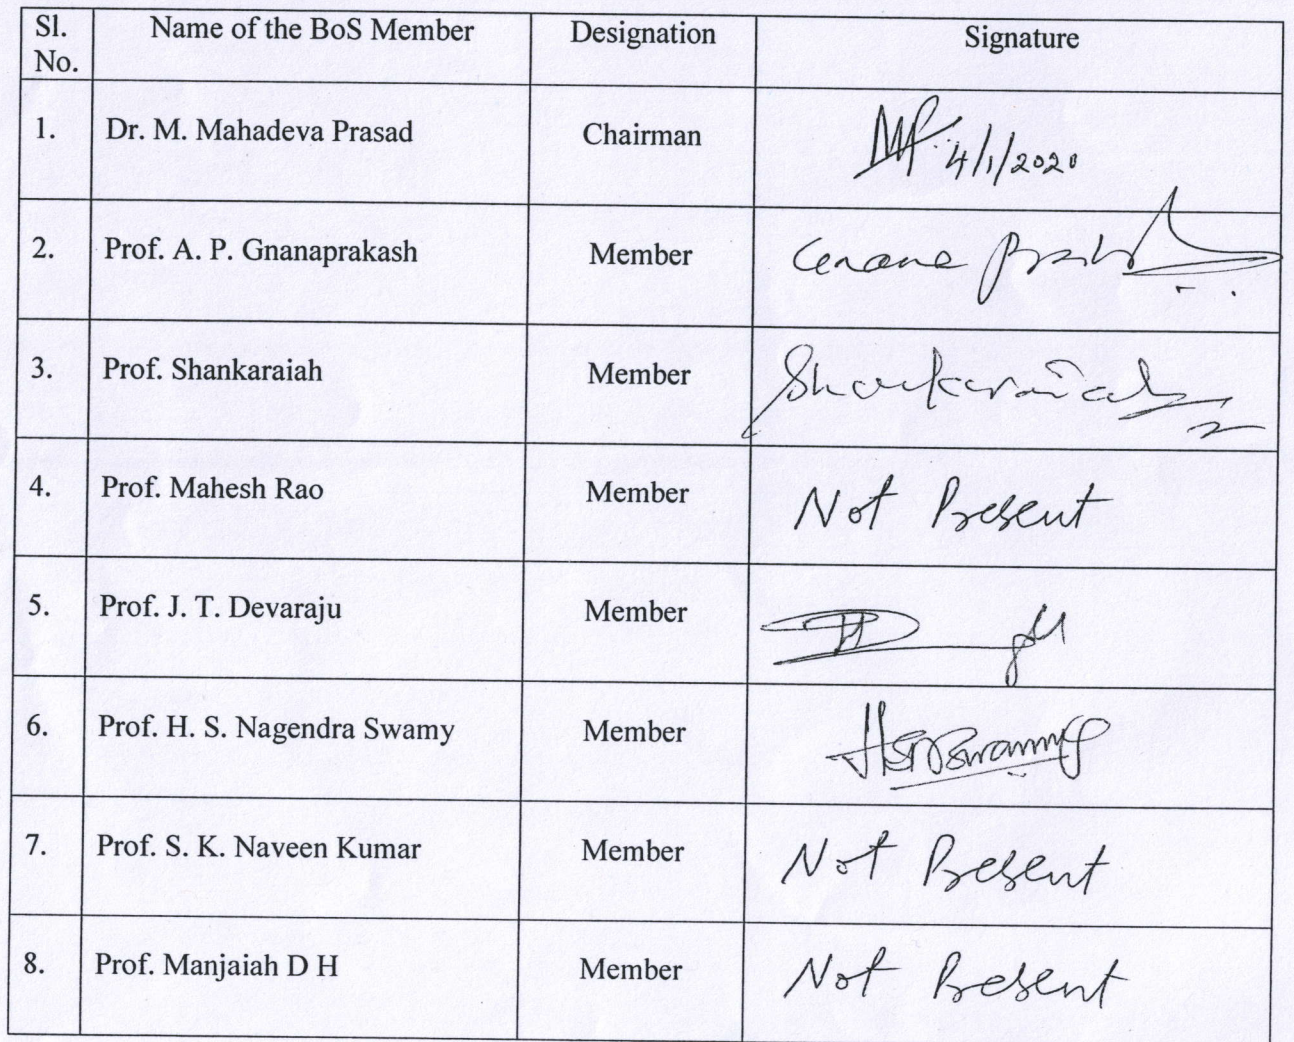 Sl. No. Name of the BoS Member Designation Signature
1. Dr. M. Mahadeva Prasad Chairman MP. 4/1/2020
2. Prof. A. P. Gnanaprakash Member
3. Prof. Shankaraiah Member Shankaraiah
4. Prof. Mahesh Rao Member Not Present
5. Prof. J. T. Devaraju Member
6. Prof. H. S. Nagendra Swamy Member
7. Prof. S. K. Naveen Kumar Member Not Present
8. Prof. Manjaiah D H Member Not Present